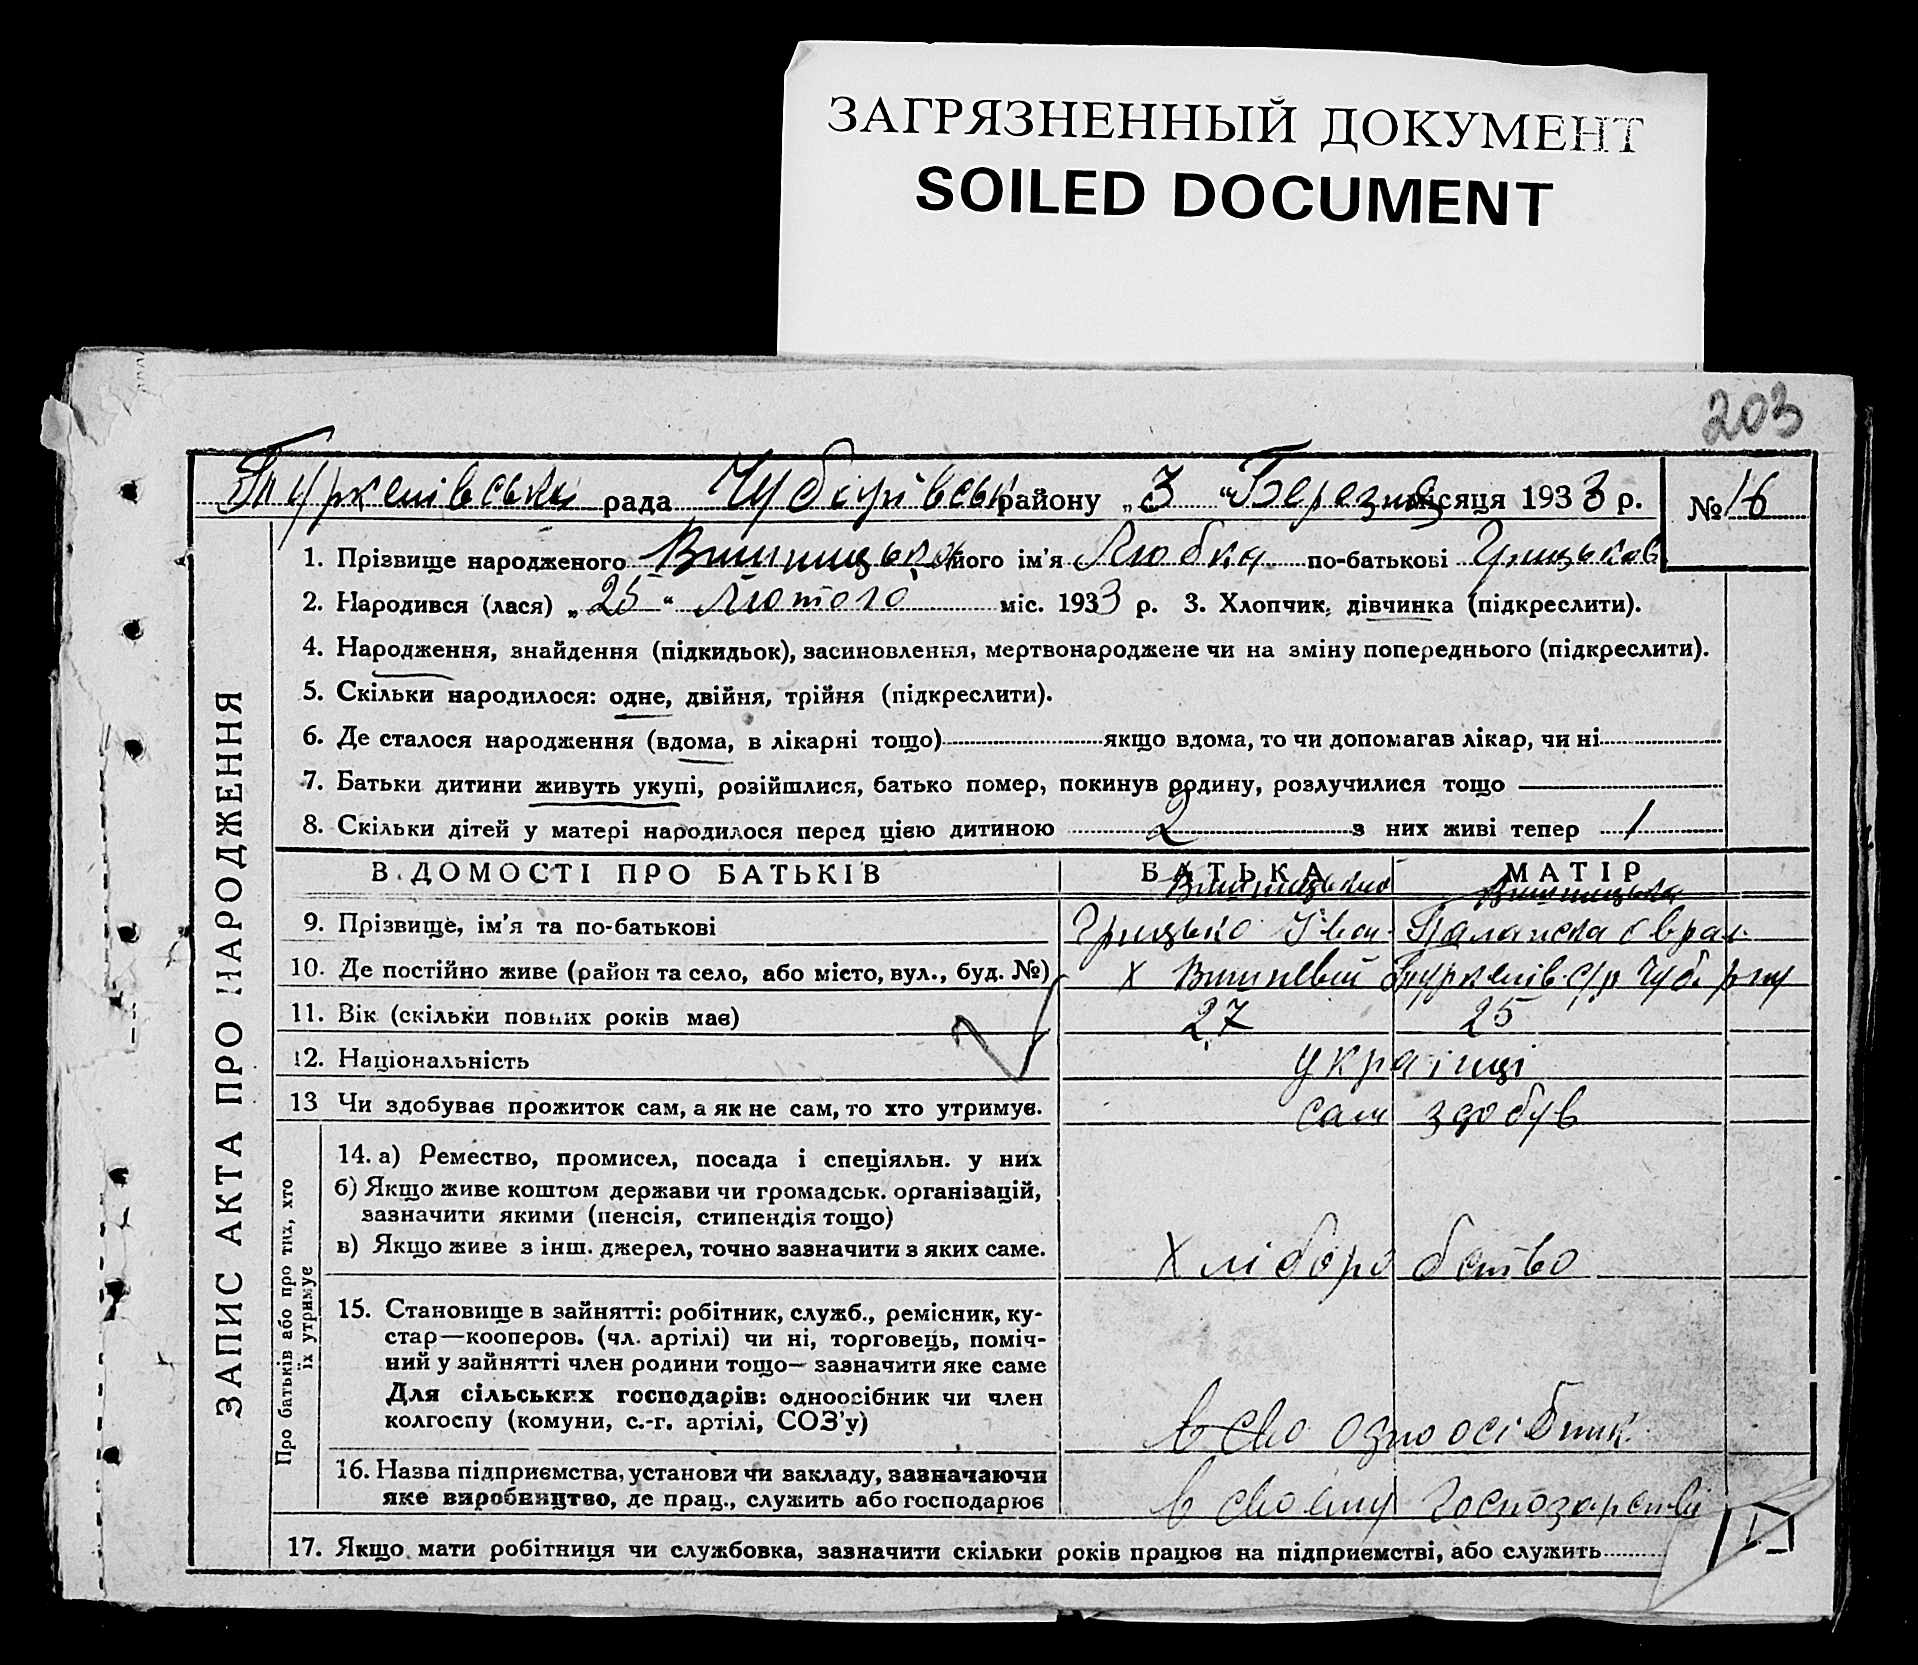 ЗАГРЯЗНЕННЫЙ ДОКУМЕНТ
SOILED DOCUMENT
203
Туркенівська рада Чубарівськ району „3 “ Березня місяця 1933 р. № 16
1. Прізвище народженого його ім'я Любка по-батькові Грицьков
2. Народився (лася) „ 25 “ Лютого міс. 1933 р. 3. Хлопчик, дівчинка (підкреслити).
4. Народження, знайдення (підкидьок), засиновлення, мертвонароджене чи на зміну попереднього (підкреслити).
5. Скільки народилося: одне, двійня, трійня (підкреслити).
6. Де сталося народження (вдома, в лікарні тощо) якщо вдома, то чи допомагав лікар, чи ні
7. Батьки дитини живуть укупі, розійшлися, батько помер, покинув родину, розлучилися тощо
8. Скільки дітей у матері народилося перед цією дитиною 2 з них живі тепер 1
ЗАПИС АКТА ПРО НАРОДЖЕННЯ
В ДОМОСТІ ПРО БАТЬКІВ БАТЬКА МАТІР
9. Прізвище, ім'я та по-батькові Грицько Іван
10. Де постійно живе (район та село, або місто, вул., буд. №) х
11. Вік (скільки повних років має) 27 25
12. Національність українці
13 Чи здобуває прожиток сам, а як не сам, то хто утримує. сам здобув
Про батьків або про тих, хто
їх утримує
14. а) Ремество, промисел, посада і спеціяльн. у них
б) Якщо живе коштом держави чи громадськ. організацій,
зазначити якими (пенсія, стипендія тощо)
в) Якщо живе з інш. джерел, точно зазначити з яких саме. Хліборобство
15. Становище в зайнятті: робітник, служб., ремісник, ку-
стар—кооперов. (чл. артілі) чи ні, торговець, поміч-
ний у зайнятті член родини тощо— зазначити яке саме
Для сільських господарів: одноосібник чи член
колгоспу (комуни, с.-г. артілі, СОЗ'у) одноосібник
16. Назва підприємства, установи чи закладу, зазначаючи
яке виробництво, де прац., служить або господарює в своему господарстві
17. Якщо мати робітниця чи службовка, зазначити скільки років працює на підприємстві, або служить